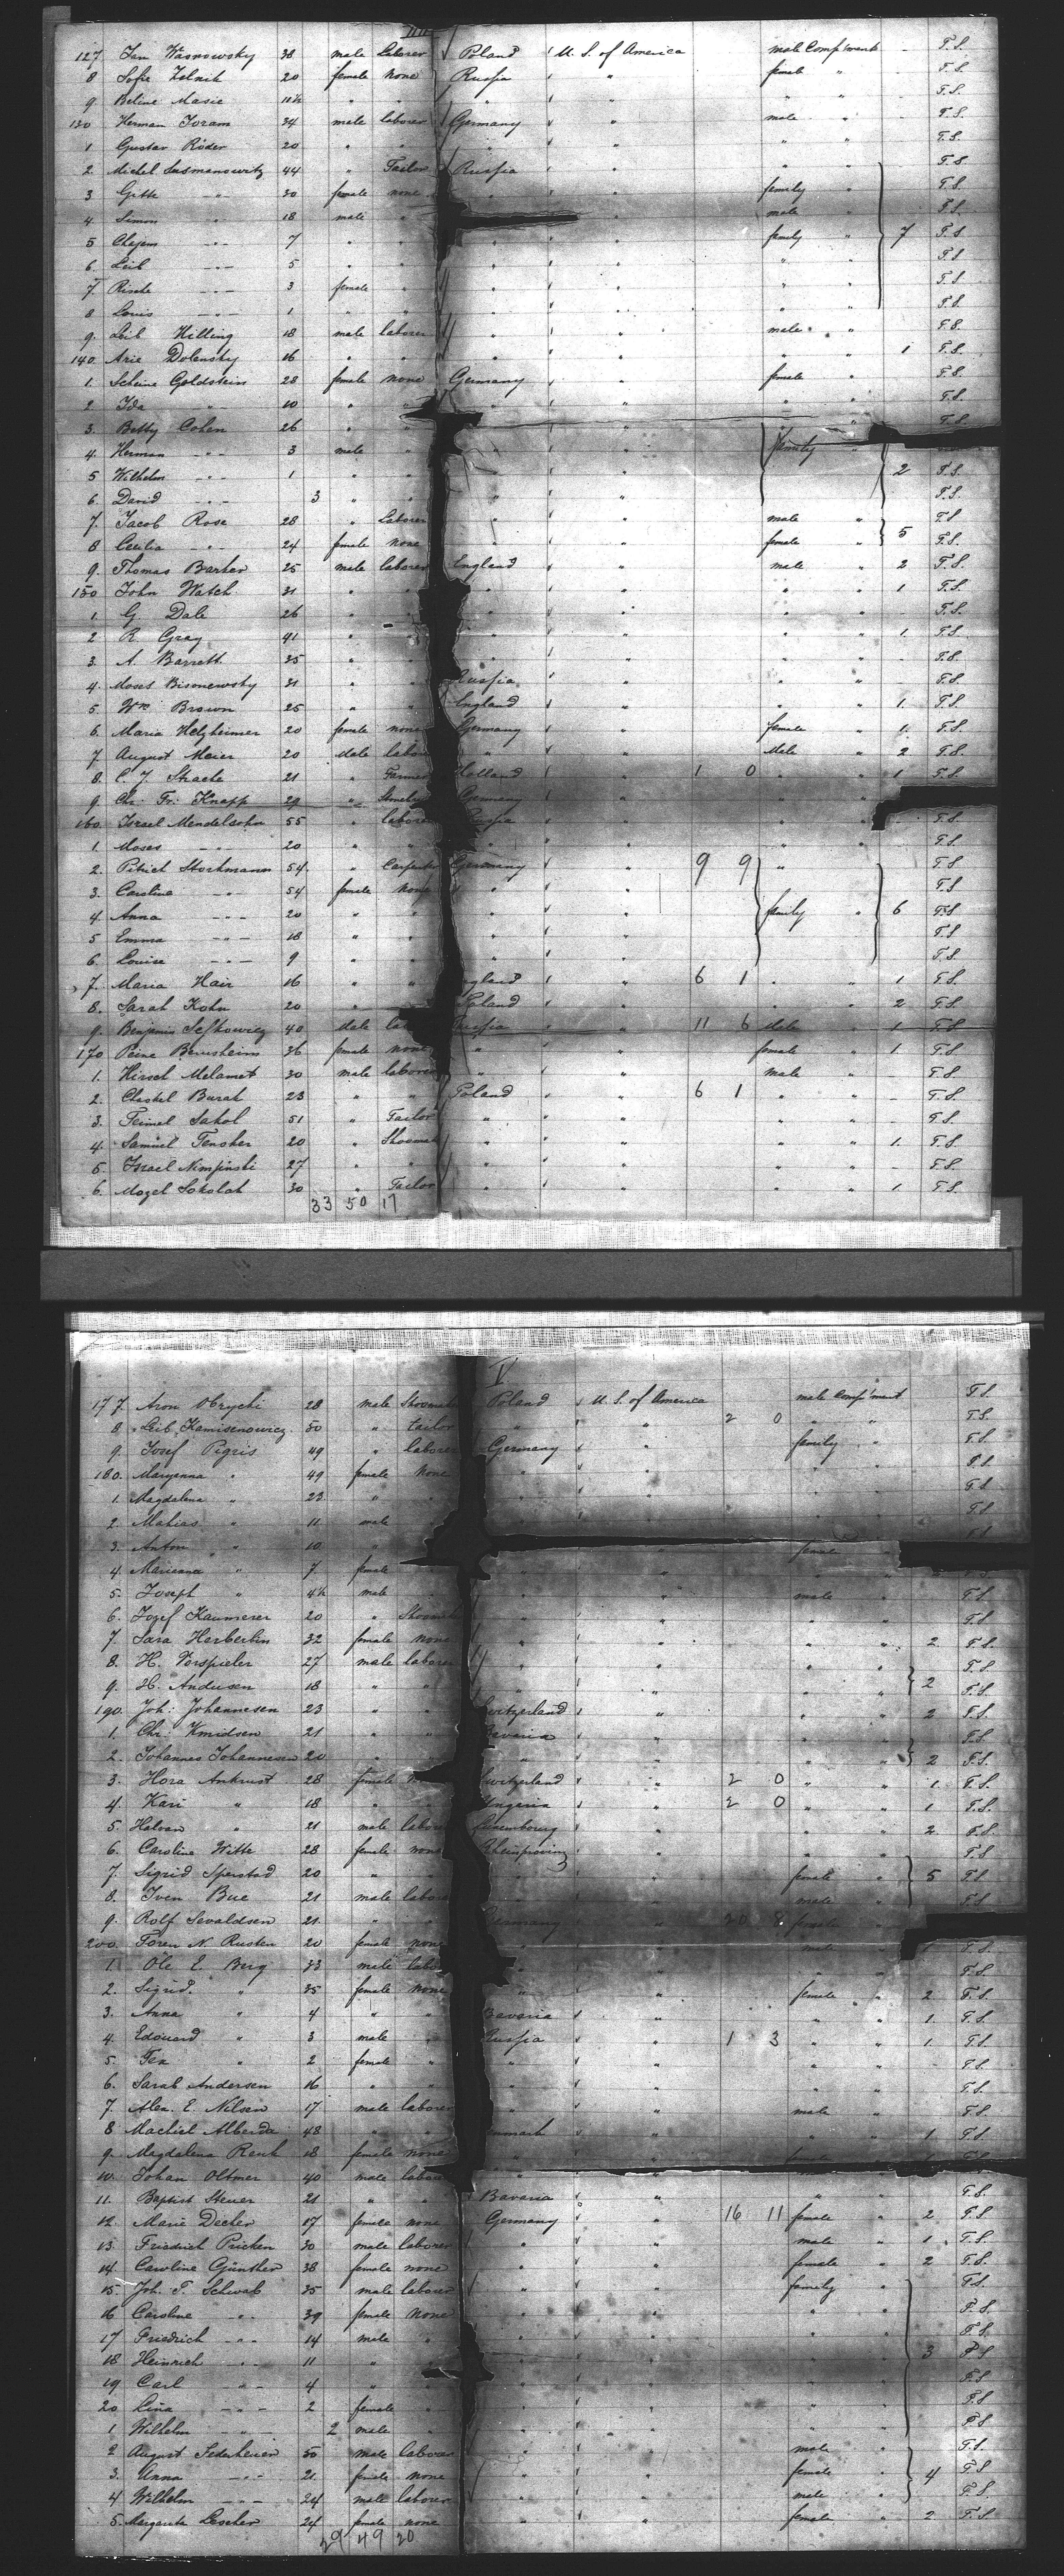 IIII
127 Jan Wasnowsky 38 male Laborer Poland U. S. of America male Comp'ment - T.S.
8 Sofie Zolnik 20 female None Russia " female " - T.S.
9. Beline Masie 11½ " " " " " " - T.S.
130 Herman Joram 24 male laborer Germany " male " - T.S.
1 Gustav Röder 20 " " " " " " T.S.
2. Michel Susmanowitz 44 " Tailor Russia " " " T.S.
3 Gitte -"- 30 female none " " family " T.S.
4. Simon -"- 18 male " " male " T.S.
5 Chejem -"- 7 " " " " family " 7 T.S.
6. Leib -"- 5 " " " " " " T.S.
7. Rische -"- 3 female " " " " " T.S.
8 Louis -"- 1 " " " " " " T.S.
9. Leib Hilling 18 male laborer " " male " T.S.
140. Arie Dolensky 16 " " " " " " 1 T.S.
1. Scheine Goldstein 28 female none Germany " female " T.S.
2 Ida -"- 10 " " " " " " T.S.
3. Betty Cohen 26 " " " " T.S.
4. Herman -"- 3 male " " " family "
5 Wilhelm -"- 1 " " " " 2 T.S.
6. David -"- 3 " " " " T.S.
7. Jacob Rose 28 " Laborer " " male " T.S.
8 Cecilia -"- 24 female none " " female " 5 T.S.
9. Thomas Barker 25 male laborer England " male " 2 T.S.
150 John Watch 31 " " " " " " 1 T.S.
1. G Dale 26 " " " " " " T.S.
2 R. Gray 41 " " " " " 1. T.S.
3. A. Barrett 35 " " " " " - T.S.
4. Moses Bisonewsky 31 " " Russia " " " - T.S.
5. Wm Brown 25 " " England " " " 1. T.S.
6. Maria Helzheimer 20 female none Germany " female " 1. T.S.
7 August Meier 20 Male labor " " Male " 2 T.S.
8. C. J. Strache 21 " Farmer Holland " 1 0 " " 1 T.S.
9 Chr. Fr. Knapp 29 " Germany " " "
160. Israel Mendelsohn 55 " labore Russia " " " - T.S.
1 Moses -"- 20 " " " " " " T.S.
2. Pitrich Storkmann 54. " Carpente Germany " 9 9 " T.S.
3. Caroline -"- 54 female None " " T.S.
4. Anna -"- 20 " " " " family " 6 T.S.
5 Emma -"- 18 " " " " T.S.
6. Louise -"- 9 " " " " T.S.
7. Maria Hair 16 " " ngland " 6 1 " " 1 T.S.
8. Sarah Kohn 20 " " Poland " " " 2 T.S.
9. Benjamin Sefkowicz 40 Male la Russia " 11 6 Male " 1. T.S.
170 Peine Bernsheim 36 female none " " female " 1. T.S.
1. Hirsch Melamet 30 male laborer " " male " - T.S.
2. Chaskel Burak 23 " " Poland " 6 1 " " - T.S.
3. Feimel Sakol 51 " Tailor " " " " T.S.
4. Samuel Tensher 20 " Shoemak " " " " 1. T.S.
5. Israel Nimpinski 27 " " " " " " - T.S.
6. Mozel Sokolah 30 " Tailor " " " " 1. T.S.
33 50 17
V
177. Aron Obrycki 28 male Shoemake Poland U. S. of America male Comp'ment T.S.
8 Leib Kamisenowicz 50 " tailor " " 2 0 " " T.S.
9. Josef Pigris 49 " laborer Germany " family " T.S.
180. Maryanna " 49 female None " " " " T.S.
1. Magdalena " 23 " " " " T.S.
2. Mahias " 11 male " " T.S.
3. Anton " 10 " " female " T.S.
4. Marianna " 7 female " " " " T.S.
5. Joseph " 4½ male " " male " T.S.
6. Jozef Kaumerer 20 " Shoemak " " " " T.S.
7. Sara Herberlin 32 female none " " " " 2. T.S.
8. H. Vorspieler 27 male laborer " " " " T.S.
9. H. Andersen 18 " " " " " " 2 T.S.
190. Joh: Johannesen 23 " " witzerland " " " 2 T.S.
1. Chr: Knudsen 21 " " Bavaria " " " T.S.
2. Johannes Johannesen 20 " " " " " 2 T.S.
3. Hora Ankrust 28 female Switzerland " 2 0 " " 1. T.S.
4. Kari " 18 " Ungaria " 2 0 " " 1 T.S.
5. Halvan " 21 male labore Luxembourg " " " 2. T.S.
6. Caroline Witte 28 female none Rheinprovinz " " " T.S.
7. Sigrid Sperstad 20 " " " female " 5 T.S.
8. Iven Bue 21 male labore " " male " T.S.
9. Rolf Sevaldsen 21. " " Germany " 20 8 female "
200. Toren N. Rusten 20 female none " male " 1 T.S.
1. Ole E. Berg 33 male labo " " " " T.S.
2. Sigrid. " 35 female none " " female " 2 T.S.
3. Anna " 4 " " Bavaria " " " 1. T.S.
4. Edouard " 3 male " Russia " 1 3 " " 1. T.S.
5. Tea " 2 female " " " " " - T.S.
6. Sarah Andersen 16 " " " " " T.S.
7. Alex. E. Nilsen 17 male laborer " " male " T.S.
8 Machiel Alberda 48 " " nmark " " " 1 T.S.
9. Magdalena Renk 18 female none " " female " 1 T.S.
10. Johan Oltmer 40 male labore " "
11. Baptist Steuer 21 " " Bavaria " " " T.S.
12. Marie Decker 17 female none Germany " 16 11 female " 2 T.S.
13. Friedrich Pricken 30 male laborer " " male " 1 T.S.
14. Caroline Günther 38 female none " " female " 2 T.S.
15. Joh. P. Schwab 35 male laborer " " family " T.S.
16 Caroline -"- 39 female None " " " " T.S.
17 Friedrich -"- 14 male " " " " " T.S.
18 Heinrich -"- 11 " " " " 3 T.S.
19 Carl -"- 4 " " " " T.S.
20 Lina -"- 2 female " " " " " T.S.
1. Wilhelm -"- 2 male " " " " " T.S.
2 August Sederheuer 50 male laborer " " male " T.S.
3. Anna -"- 21. female none " " female " 4 T.S.
4 Wilhelm -"- 24 male laborer " " male " T.S.
5. Margareta Lescher 24 female none " " female " 2 T.S.
29 49 20